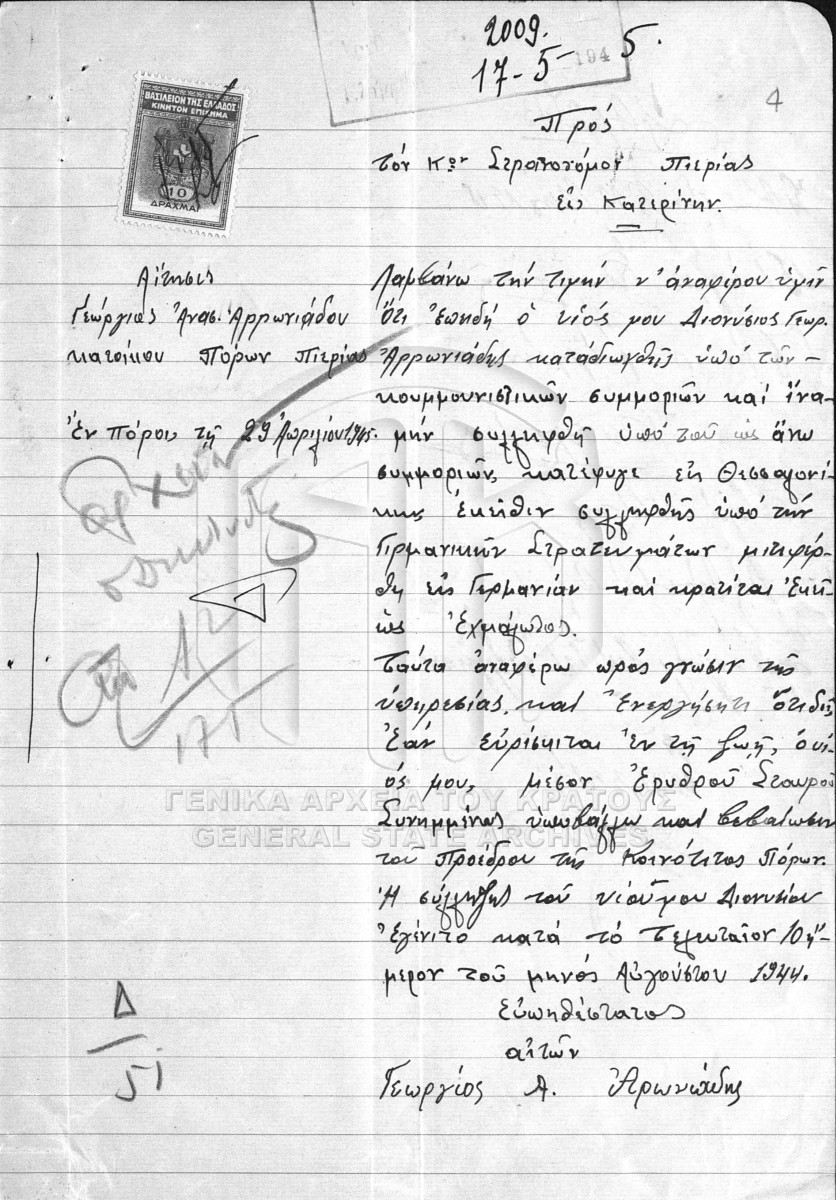 2009.
17-5-1945.
4
ΒΑΣΙΛΕΙΟΝ ΤΗΣ ΕΛΛΑΔΟΣ
ΚΙΝΗΤΟΝ ΕΠΙΣΗΜΑ
10
ΔΡΑΧΜΑΙ
Πρός
τόν Κον Στρατονόμον Πιερίας
εἰς Κατερίνην.
Αἴτησις
Γεώργιος Ἀνασ. Ἀρρωνιάδου
κατοίκου Πόρων Πιερίας
Ἐν Πόροις τῇ 29 Ἀπριλίου 1945.
Λαμβάνω τήν τιμήν ν' ἀναφέρου ὑμῖν
Ὅτι ἐπηδή ὁ υἱός μου Διονύσιος Γεωρ.
Ἀρρωνιάδης καταδιωχθεῖς ὑπό τῶν -
κουμμουνιστικῶν συμμοριῶν καί ἵνα-
μήν συλληφθῆ ὑπό τοῦ ὡς ἄνω
συμμοριῶν, κατέφυγε εἰς Θεσσαλονί-
κης ἐκεῖθεν συλληφθῆς ὑπό τήν
Γερμανικῶν Στρατευμάτων μετεφέρ-
θη εἰς Γερμανίαν καί κρατεῖται ἐκεῖ
ὡς ἐχμάλωτος.
ταῦτα ἀναφέρω πρός γνῶσιν τῆς
ὑπηρεσίας καί ἐνεργήσητε
Ἐάν εὑρίσκεται ἐν τῇ ζωῇ, ὁ υἱ-
ός μου, μέσον Ἐρυθροῦ Σταυροῦ
Συνημμένως ὑποβάλλω καί βεβαίωσιν
τοῦ Προέδρου τῆς Κοινότητος Πόρων.
Ἡ σύλληψης τοῦ υἱοῦ μου Διονυσίου
Ἐγένετο κατά τό τελευταῖον 10ή-
μερον τοῦ μηνός Αὐγούστου 1944.
Εὐπηθέστατος
αἰτῶν
Γεωργίος Α. Ἀρωνιάδης
Δ
51
ΓΕΝΙΚΑ ΑΡΧΕΙΑ ΤΟΥ ΚΡΑΤΟΥΣ
GENERAL STATE ARCHIVES